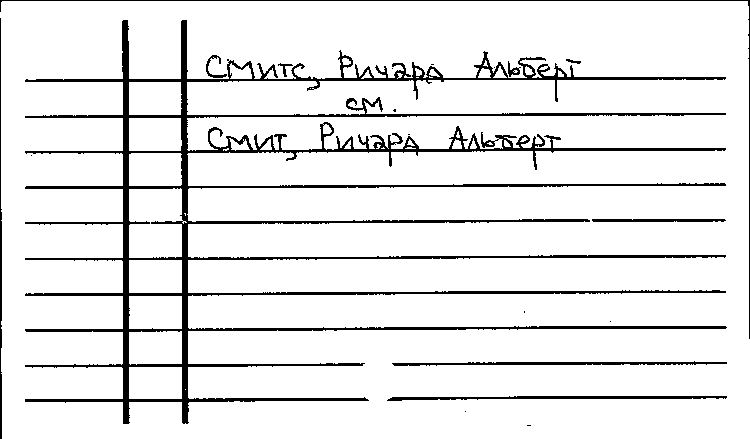 Смитс, Ричард Альберт
см.
Смит, Ричард Альберт